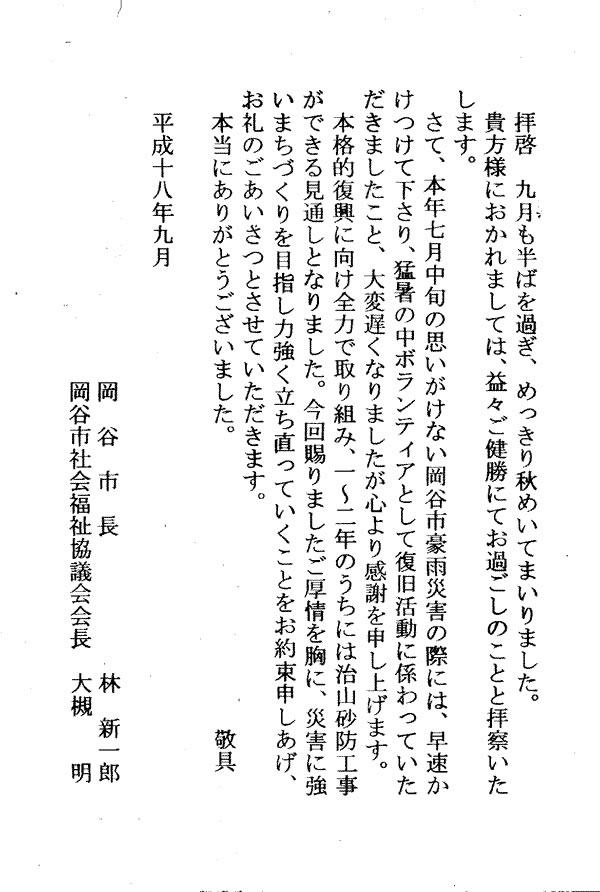 拝啓　九月も半ばを過ぎ、めっきり秋めいてまいりました。
貴方様におかれましては、益々ご健勝にてお過ごしのことと拝察いた
します。
さて、本年七月中旬の思いがけない岡谷市豪雨災害の際には、早速か
けつけて下さり、猛暑の中ボランティアとして復旧活動に係わっていた
だきましたこと、大変遅くなりましたが心より感謝を申し上げます。
本格的復興に向け全力で取り組み、一～二年のうちには治山砂防工事
ができる見通しとなりました。今回賜りましたご厚情を胸に、災害に強
いまちづくりを目指し力強く立ち直っていくことをお約束申しあげ、
お礼のごあいさつとさせていただきます。
本当にありがとうございました。
敬具
平成十八年九月
岡谷市長　林　新一郎
岡谷市社会福祉協議会会長　大槻　明